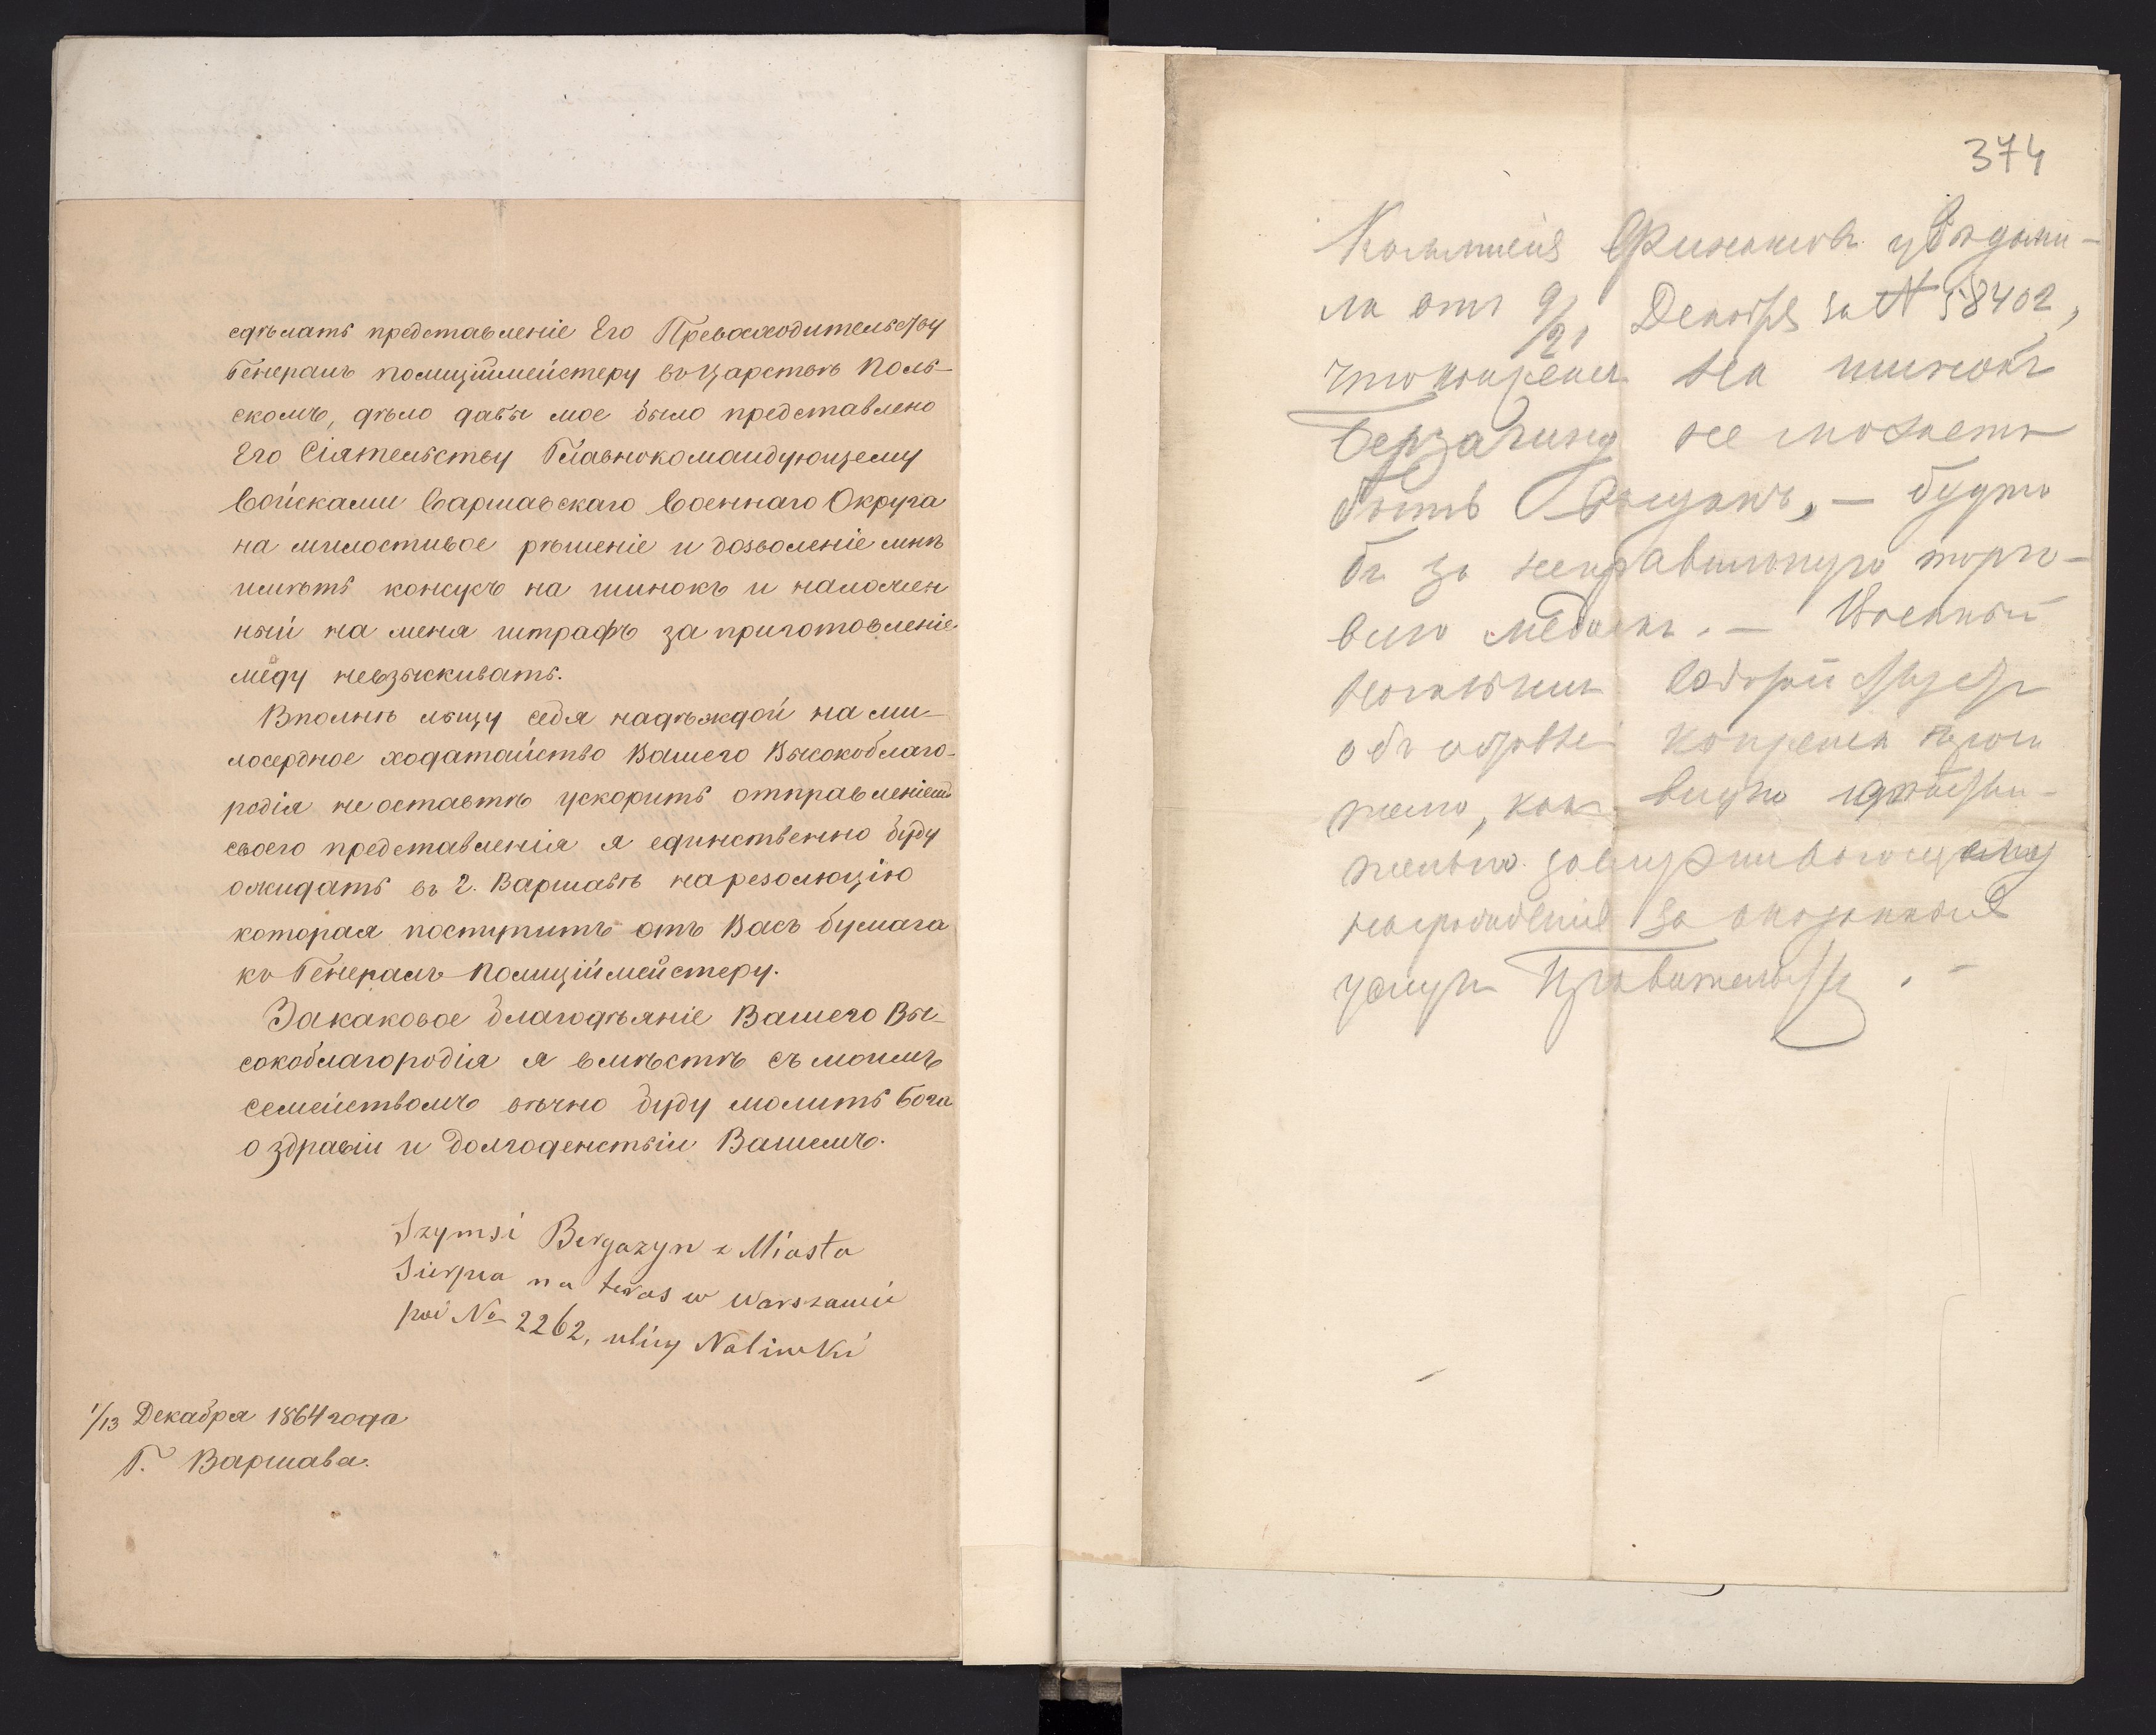 сдѣлать представленіе Его Превосходительству
Генералъ полиціймейстеру въ Царствѣ Поль-
скомъ, дѣло дабы мое было представлено
Его Сіятельству Главнокомандующему
Войсками Варшавскаго Военнаго Округа
на милостивое рѣшеніе и дозволеніе мнѣ
имѣть консукъ на шинокъ и наложен
ный на меня штрафъ за приготовленіе
мёду невзыскивать.
Вполнѣ льщу себя надѣждой на ми-
лосердное ходатайство Вашего Высокоблаго-
родія не оставтѣ ускорить отправленіемъ
своего представленія я единственно буду
ожидать въ г. Варшавѣ на резолюцію
которая поступитъ отъ Васъ бумага
къ Генералъ Полиціймейстеру.
За каковое благодѣяніе Вашего Вы-
сокоблагородія я вмѣстѣ съ моимъ
семействомъ вѣчно буду молить Бога
о здравіи и долгоденствіи Вашемъ.
Szymsi Bergazyn z Miasta
Sierpca na teras w Warszawie
pod No 2262, ulicy Naliwki
1/13 Декабря 1864 года
Г. Варшава.
374
Коммисія Финансовъ увѣдоми-
ла отъ 9/21 Декабря за № 58402,
что консенсъ на шинокъ
Бергазину не можетъ
быть выданъ, — будто
бъ за неправильную торго-
влю мёдомъ. — Военный
Начальникъ
объ выдачѣ консенса
, какъ видно дѣйстви-
тельно заслуживающему
награжденія за оказанныя
услуги Правительству. —